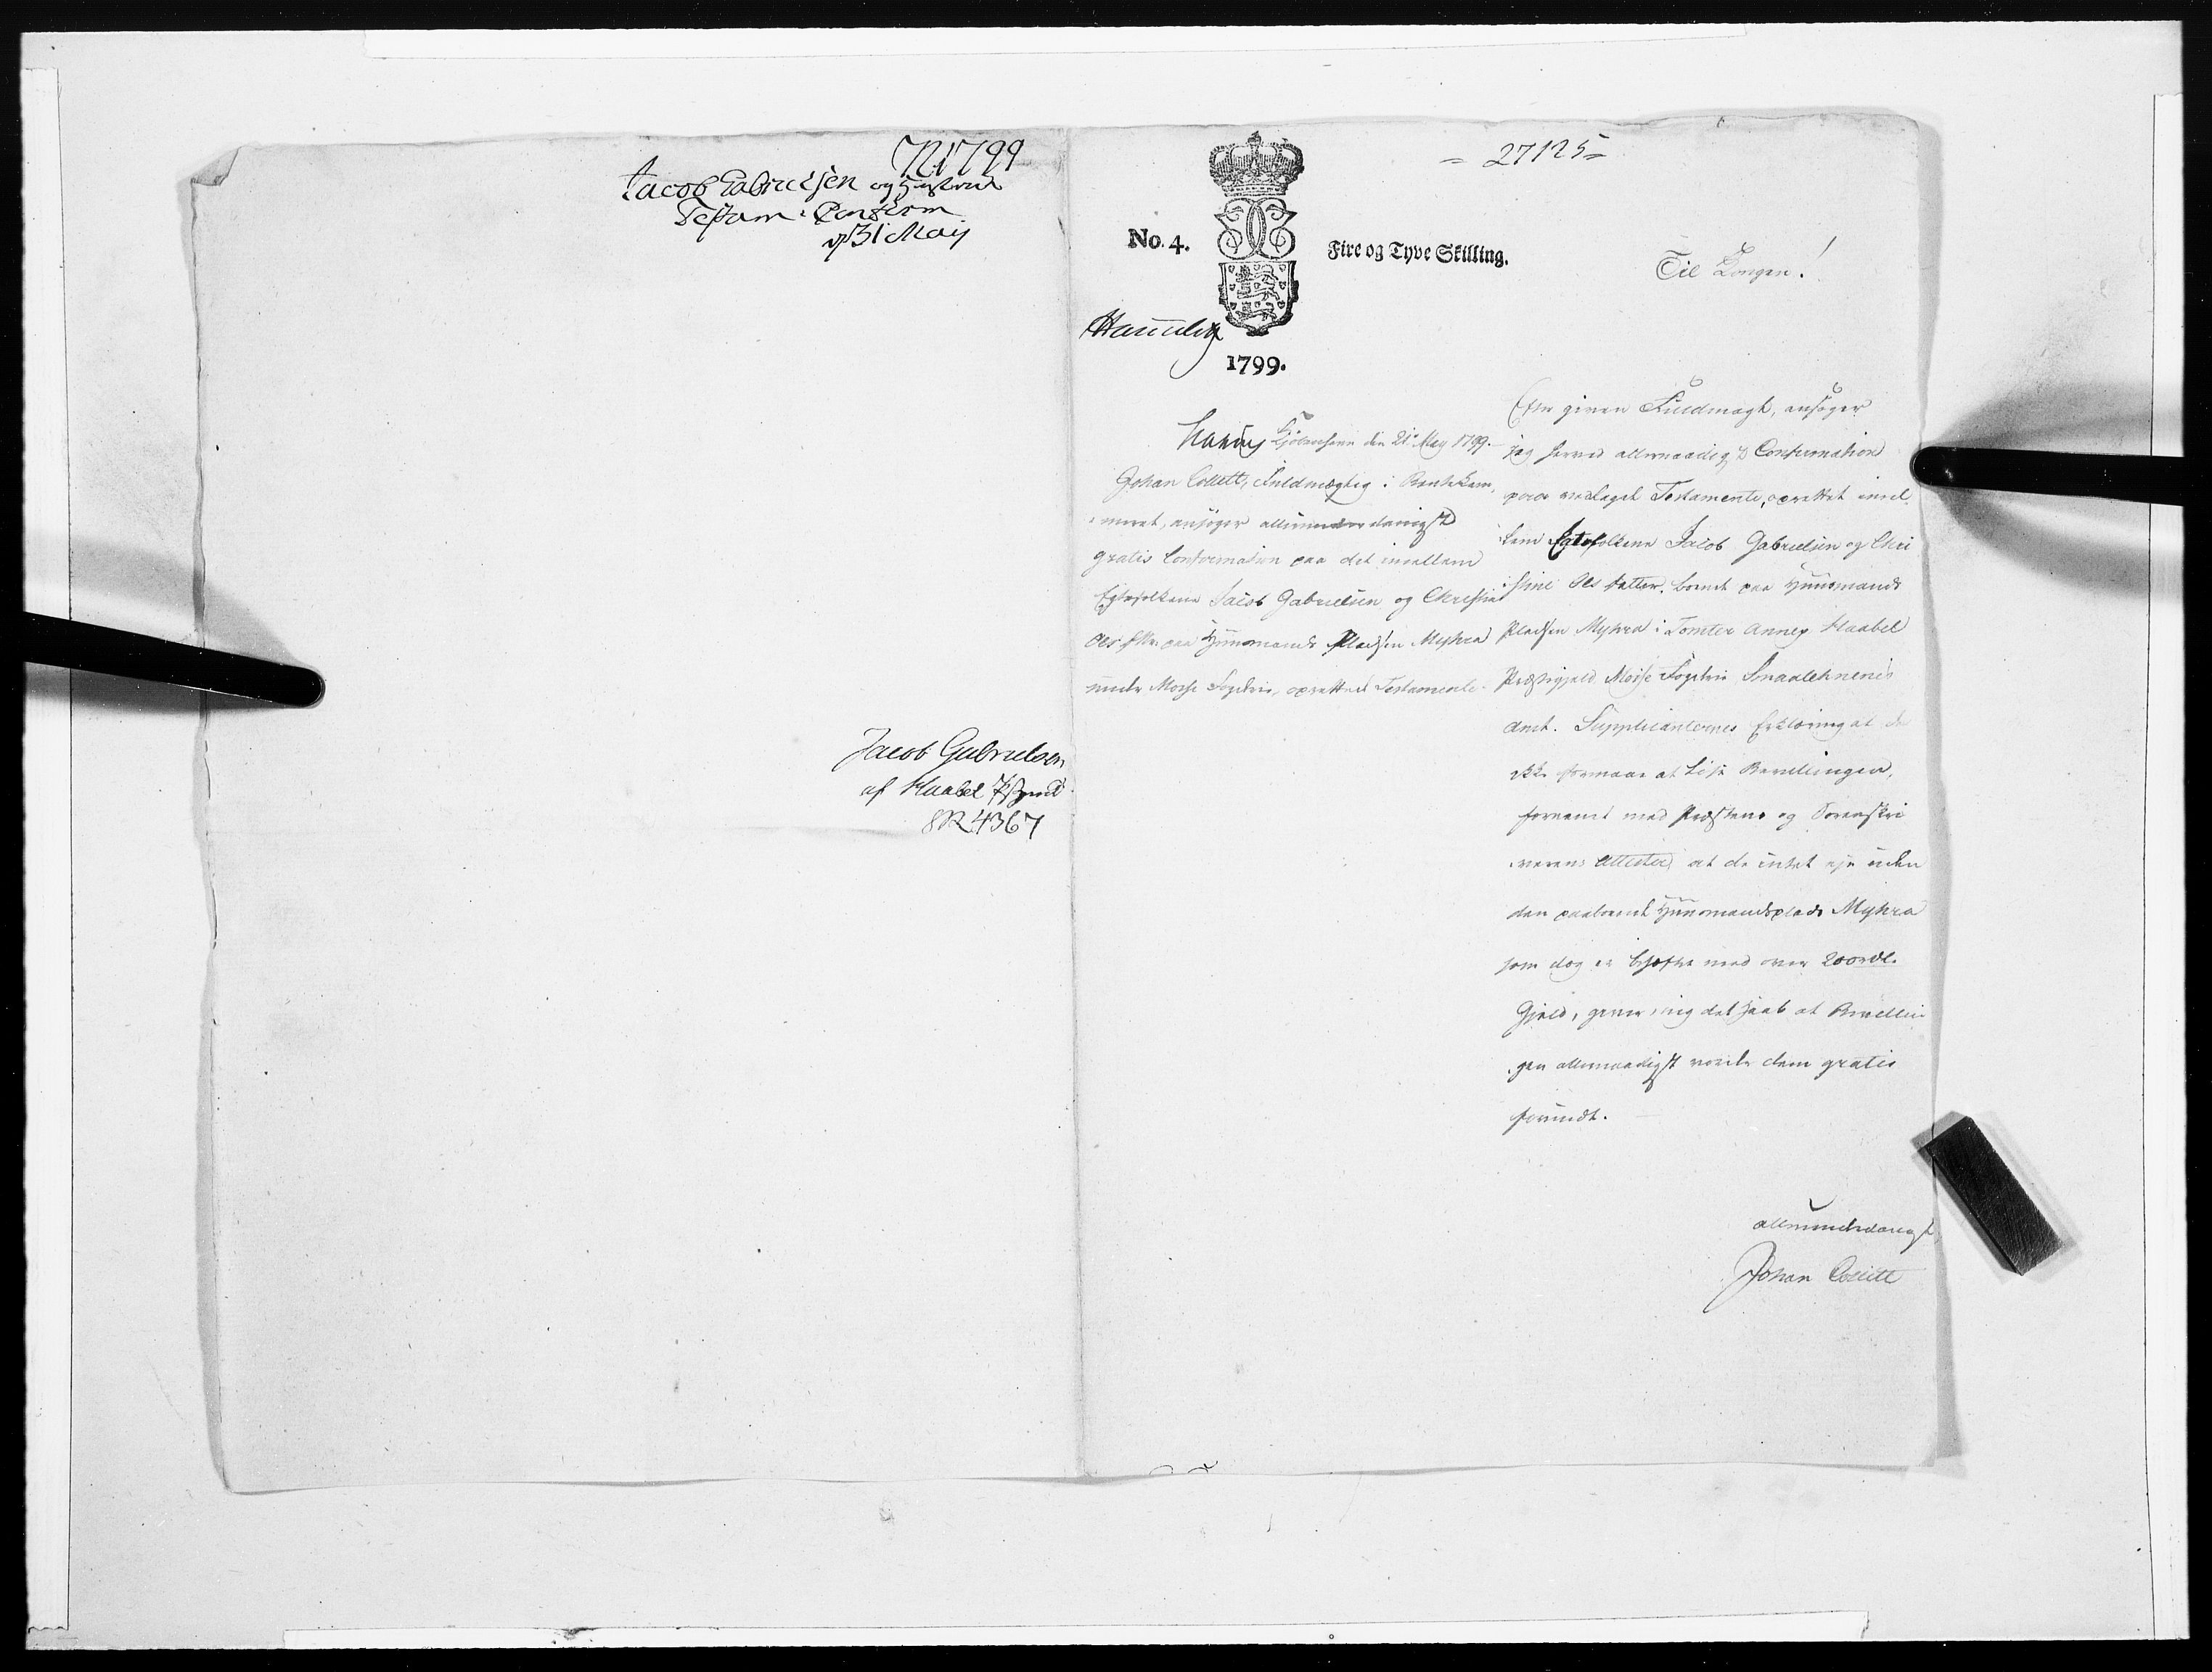 N 1799
Jacob Gabrielsen og Hustrues
Testam: Conferm
d 31 Maij
Jacob Gabrielsen
af Haabel Pstgield
8R 4367
= 27125 =
No. 4.
Fire og Tyve Skilling.
1799.
Til Kongen!
Kiøbenhavn den 21de May 1799.
Johan Collett, Fuldmægtig i Rentekam-
meret, ansøger allerunderdanigst
gratis Confirmation paa det imellem
Egtefolkene Jacob Gabrielsen og Christine
Olsdttr. paa Huusmands Pladsen Myhra
under Mosse Fogderie, oprettede Testamente.
Efter given Fuldmagt, ansøger
jeg herved allernaadigst Confirmation
paa vedlagt Testamente, oprettet imel-
lem Egtefolkene Jacob Gabrielsen og Chri-
stine Ols datter, boende paa Huusmands
Pladsen Myhra i Tomter Annex Haabel
Præstegjæld Mosse Fogderie Smaalehnenes
Amt. Supplicanternes Erklæring at de
ikke formaae at løse Bevillingen,
foreenet med Præstens og Sorenskri-
verens Attester at de intet eje uden
den paaboende Huusmandsplads Myhra
som dog er behæftet med over 200rdl.
Gjeld, giver mig det Haab at Bevillin-
gen allernaadigst vorder dem gratis
forundt.
allerunderdanigst
Johan Collett